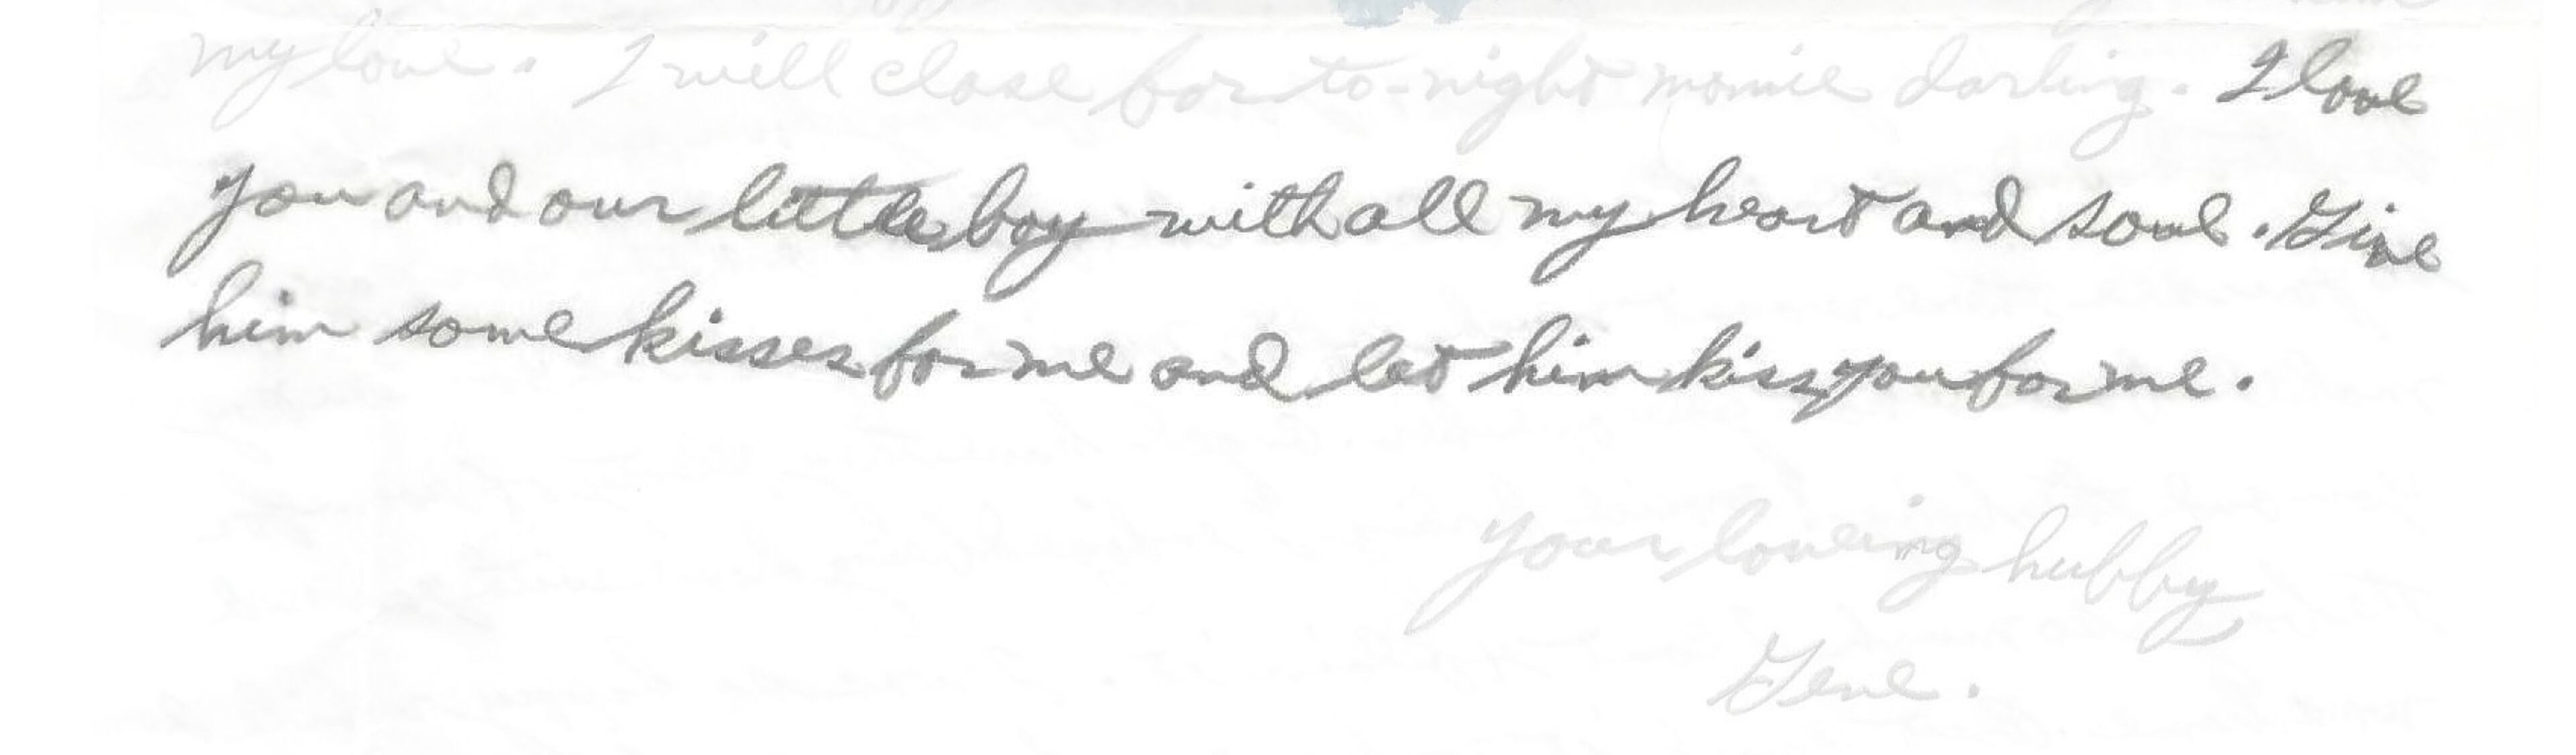 my love. I will close for to-night momie darling. I love
you and our little boy with all my heart and soul. Give
him some kisses for me and let him kiss you for me.
your loveing hubby
Gene.